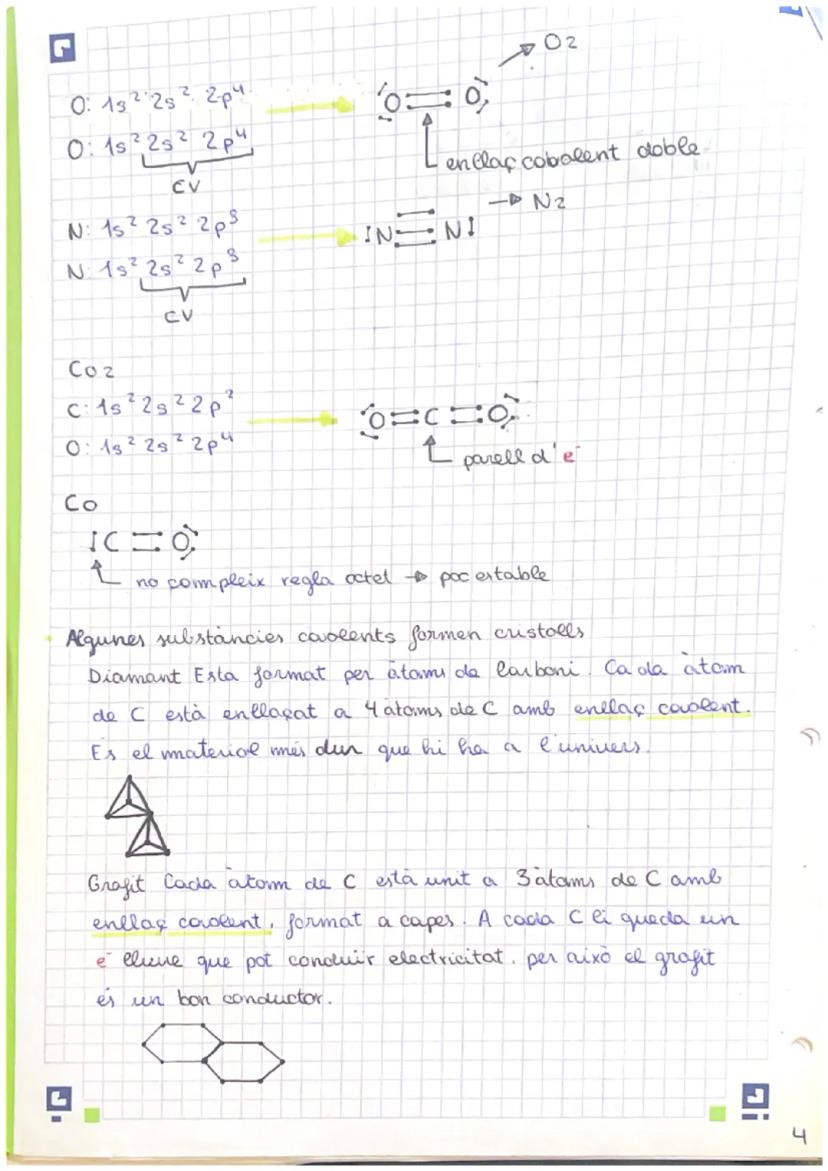 O₂
O: 1s² 2s² 2p⁴ → O = O
O: 1s² 2s² 2p⁴
enllaç cobalent doble
CV
→ N₂
N: 1s² 2s² 2p³ → N ≡ N
N: 1s² 2s² 2p³
CV
CO₂
C: 1s² 2s² 2p² → O = C = O
O: 1s² 2s² 2p⁴
parell d'e⁻
CO
C = O
no compleix regla octet → poc estable
Algunes substàncies covalents formen cristalls
Diamant Esta format per àtoms de Carboni. Cada àtom
de C està enllaçat a 4 àtoms de C amb enllaç covalent.
Es el material més dur que hi ha a l'univers.
Grafit Cada àtom de C està unit a 3 àtoms de C amb
enllaç covalent, format a capes. A cada C li queda un
e⁻ lliure que pot conduir electricitat. per això el grafit
és un bon conductor.
4